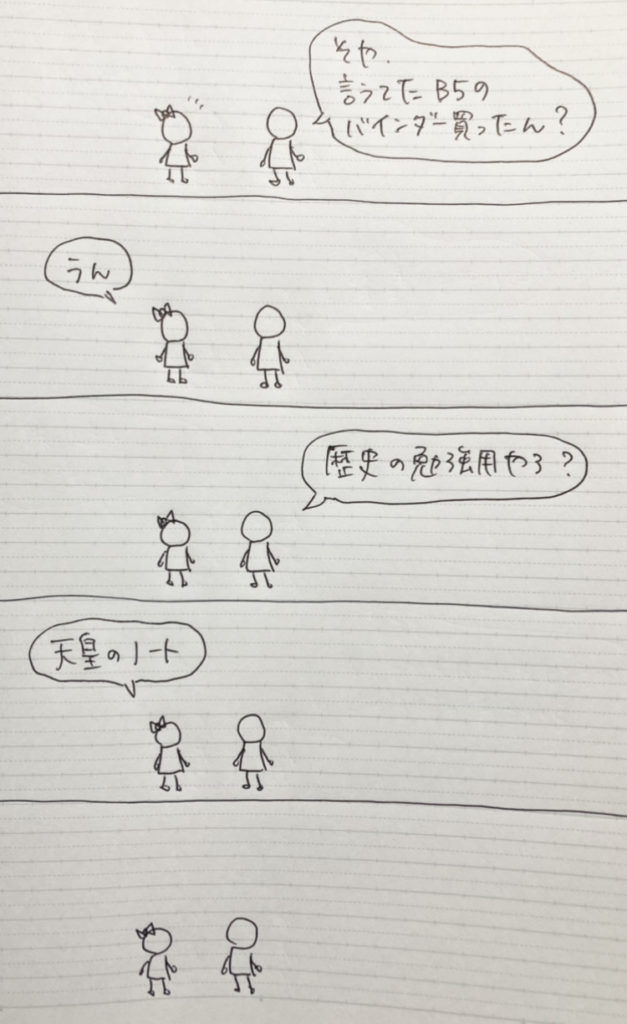 そや.
言うてた B5の
バインダー買ったん?
うん
歴史の勉強用やろ?
天皇のノート